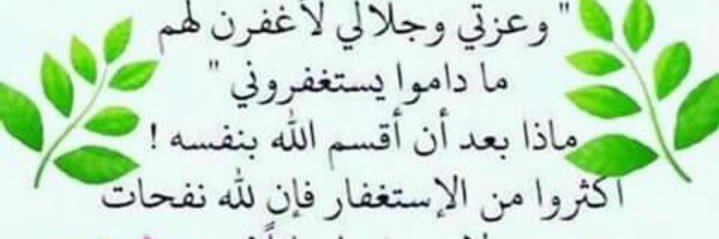 " وعزتي وجلالي لأغفرن لهم
ما داموا يستغفروني "
ماذا بعد أن أقسم الله بنفسه !
اكثروا من الإستغفار فإن لله نفحات